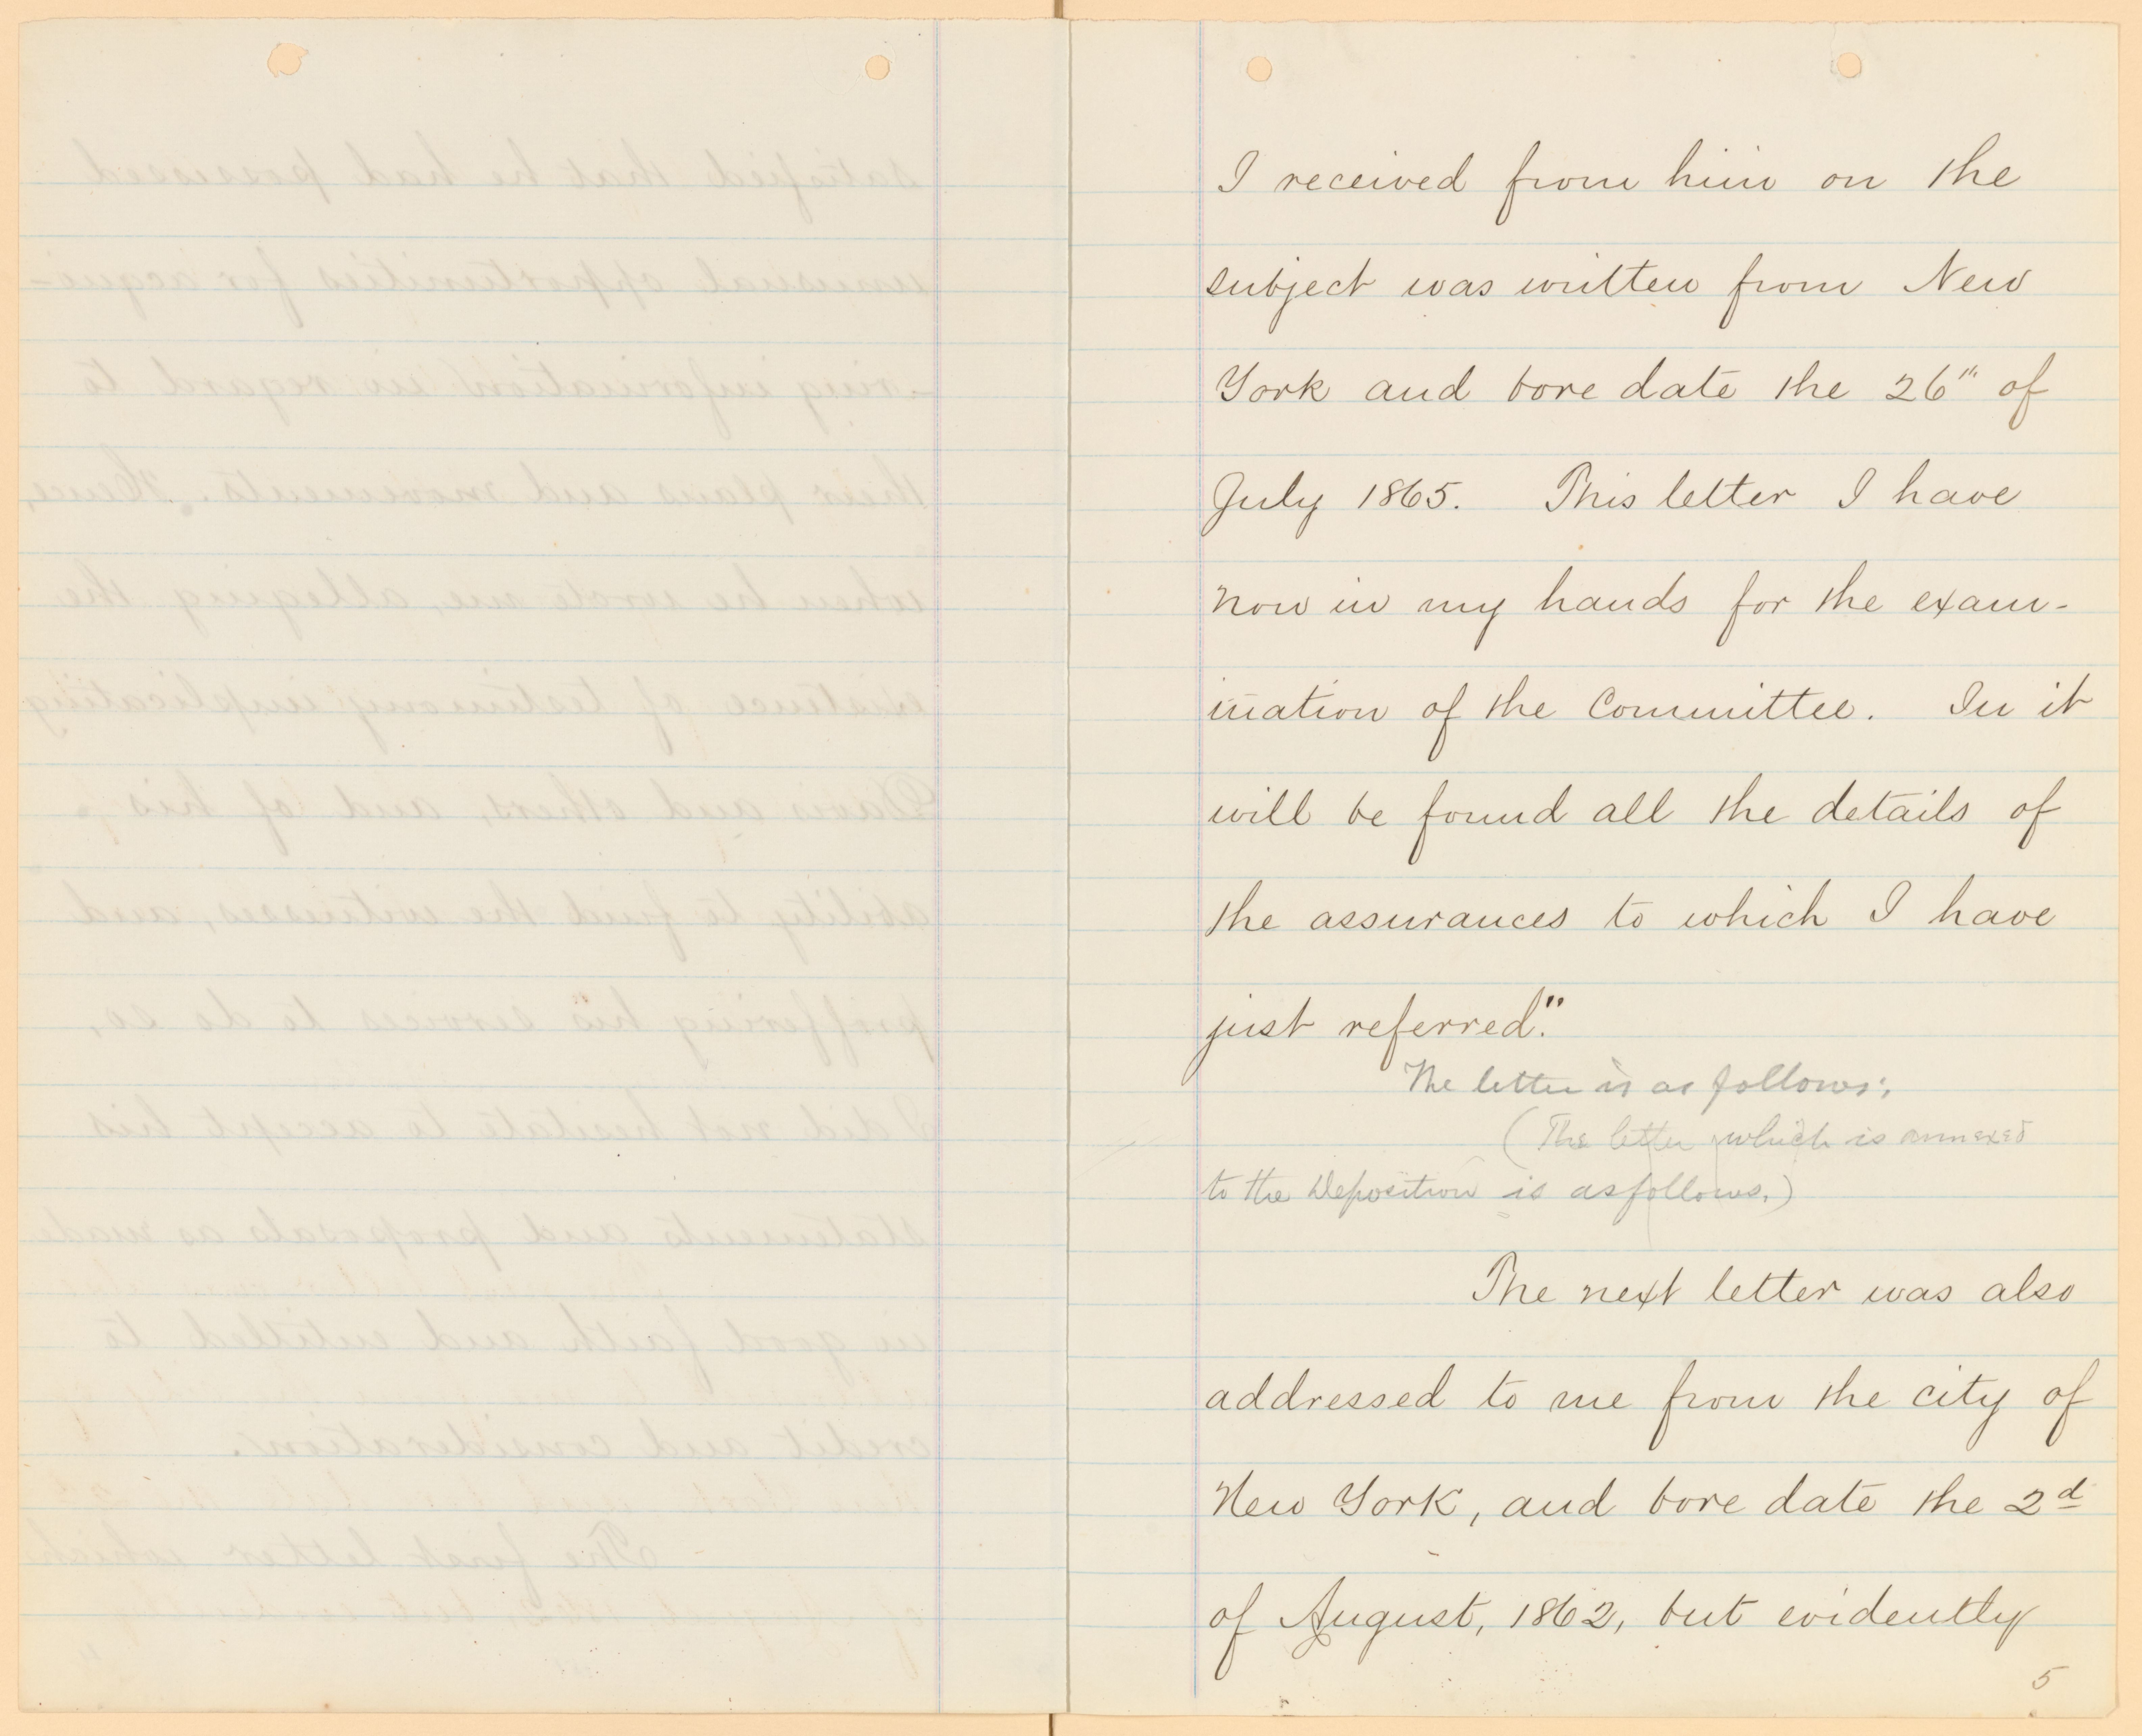 I received from him on the
subject was written from New
York and bore date the 26" of
July 1865. This letter I have
now in my hands for the exam-
ination of the Committee. In it
will be found all the details of
the assurances to which I have
just referred."
The letter is as follows:
(The letter which is annexed
to the Deposition is as follows.)
The next letter was also
addressed to me from the city of
New York, and bore date the 2d
of August, 1862, but evidently
5